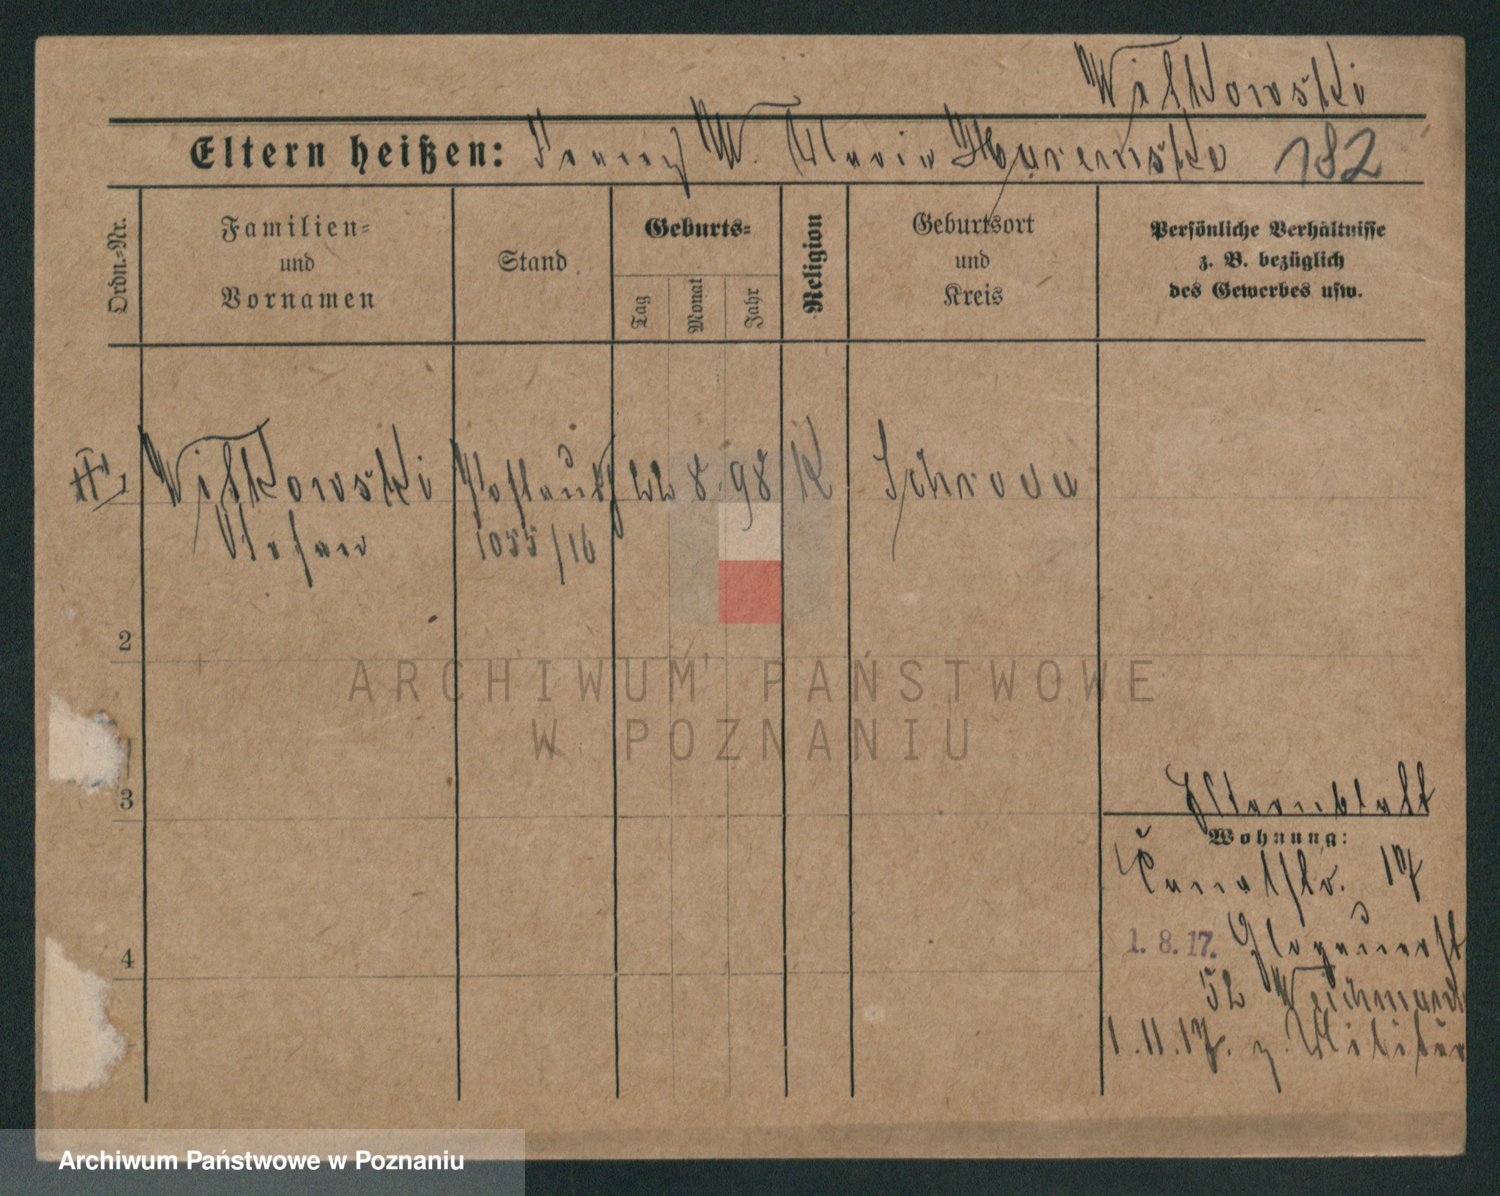 Witkowski
Eltern heißen: Franz W. Maria 182
Ordn.-Nr.
Familien=
und
Vornamen
Stand
Geburts=
Tag
Monat
Jahr
Religion
Geburtsort
und
Kreis
Persönliche Verhältnisse
z. B. bezüglich
des Gewerbes usw.
1 Witkowski 22 8. 98 K Schroda
Stefan 1055/16
2
ARCHIWUM PAŃSTWOWE
W POZNANIU
3
Elternblatt
Wohnung:
Kanalstr. 17
1. 8. 17. Glogauerst
52
4
1.11.17. z. Militär
Archiwum Państwowe w Poznaniu